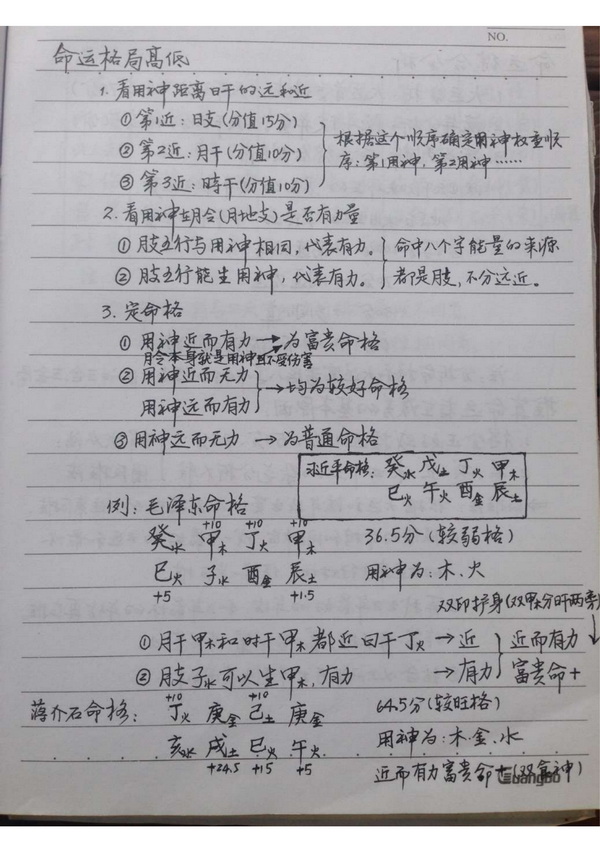 NO.
命运格局高低
1. 看用神距离日干的远和近
① 第1近：日支(分值15分)
② 第2近：月干(分值10分)
③ 第3近：时干(分值10分)
根据这个顺序确定用神权重顺
序：第1用神，第2用神……
2. 看用神在月令(月地支)是否有力量
① 月支五行与用神相同，代表有力。
② 月支五行能生用神，代表有力。
命中八个字能量的来源
都是月支，不分远近。
3. 定命格
① 用神近而有力 → 为富贵命格
月令本身就是用神且不受伤害
② 用神近而无力
用神远而有力
→ 均为较好命格
③ 用神远而无力 → 为普通命格
习近平命格：癸水 戊土 丁火 甲木
巳火 午火 酉金 辰土
例：毛泽东命格
+10 +10 +10
癸水 甲木 丁火 甲木 36.5分(较弱格)
巳火 子水 酉金 辰土 用神为：木、火
+5 +1.5
双印护身(双甲木分旰两旁)
① 月干甲木和时干甲木都近日干丁火 → 近
② 月支子水可以生甲木，有力 → 有力
近而有力
富贵命+
蒋介石命格：
+10 +10
丁火 庚金 己土 庚金 64.5分(较旺格)
亥水 戌土 巳火 午火 用神为：木、金、水
+24.5 +15 +5
近而有力富贵命+(双食神)
Guangbo